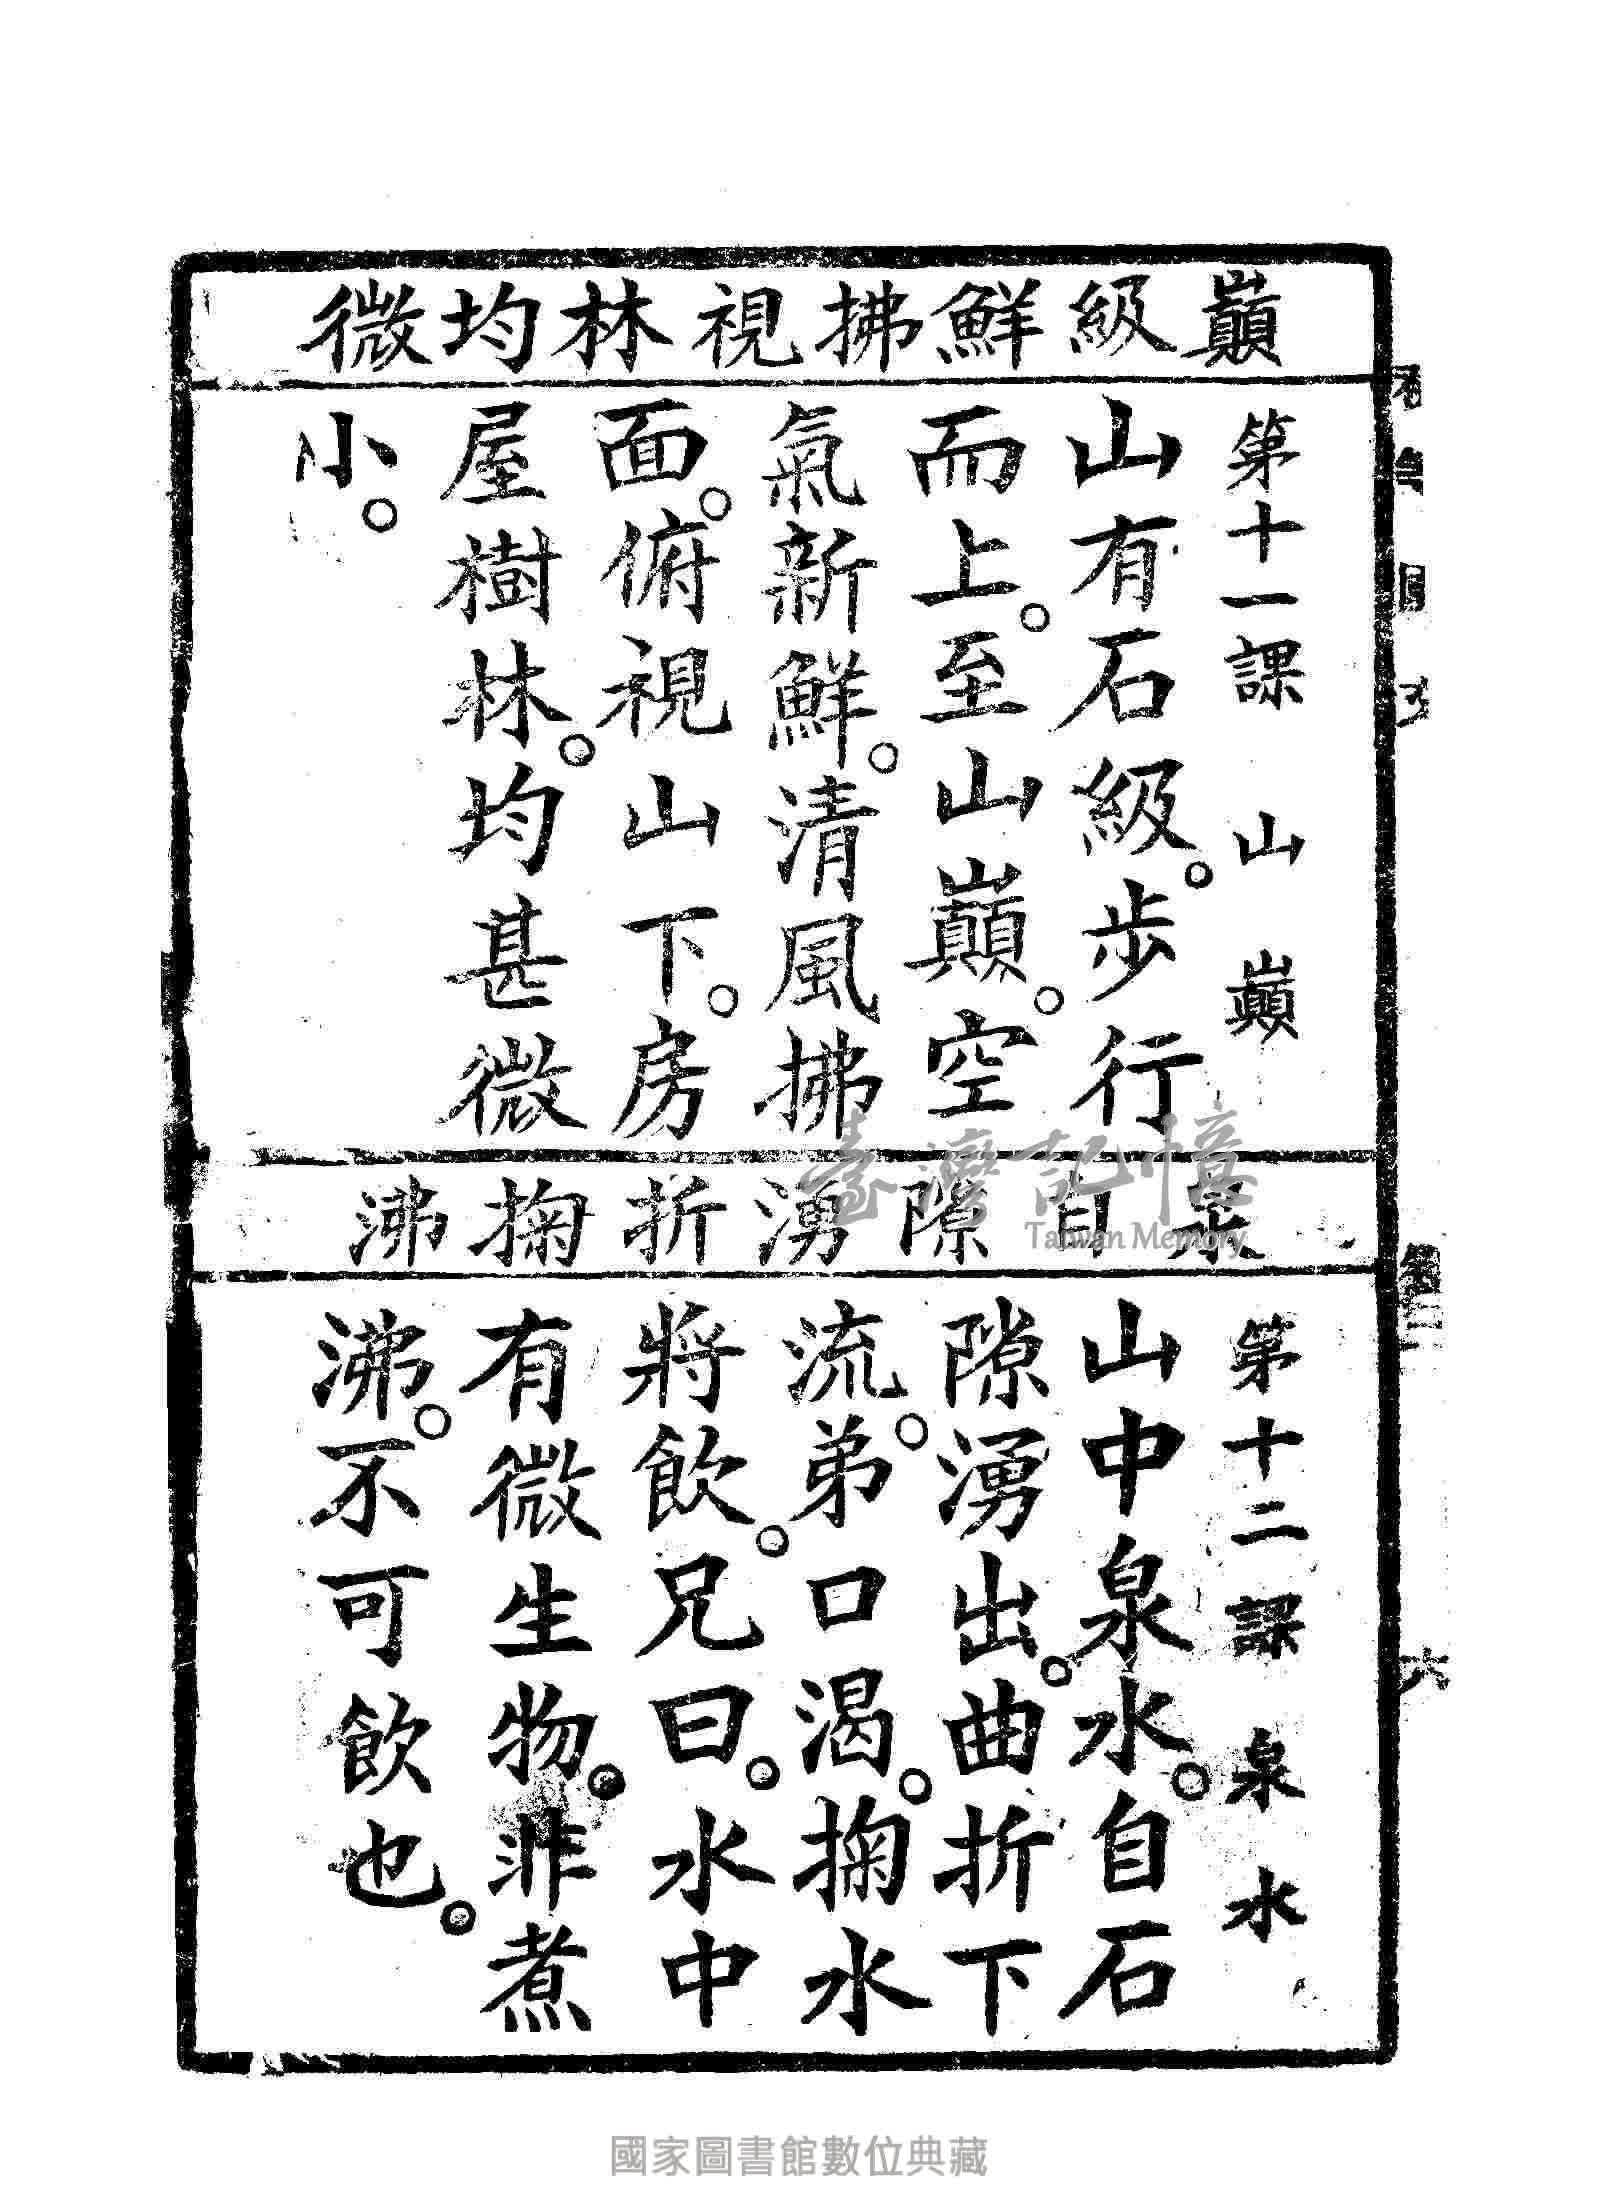 巔級鮮拂視林均微
第十一課 山巔
山有石級。步行
而上。至山巔。空
氣新鮮。清風拂
面。俯視山下。房
屋樹林。均甚微
小。
泉自隙湧折掬沸
第十二課 泉水
山中泉水。自石
隙湧出。曲折下
流。弟口渴。掬水
將飲。兄曰。水中
有微生物。非煮
沸。不可飲也。
六
臺灣記憶
Taiwan Memory
國家圖書館數位典藏